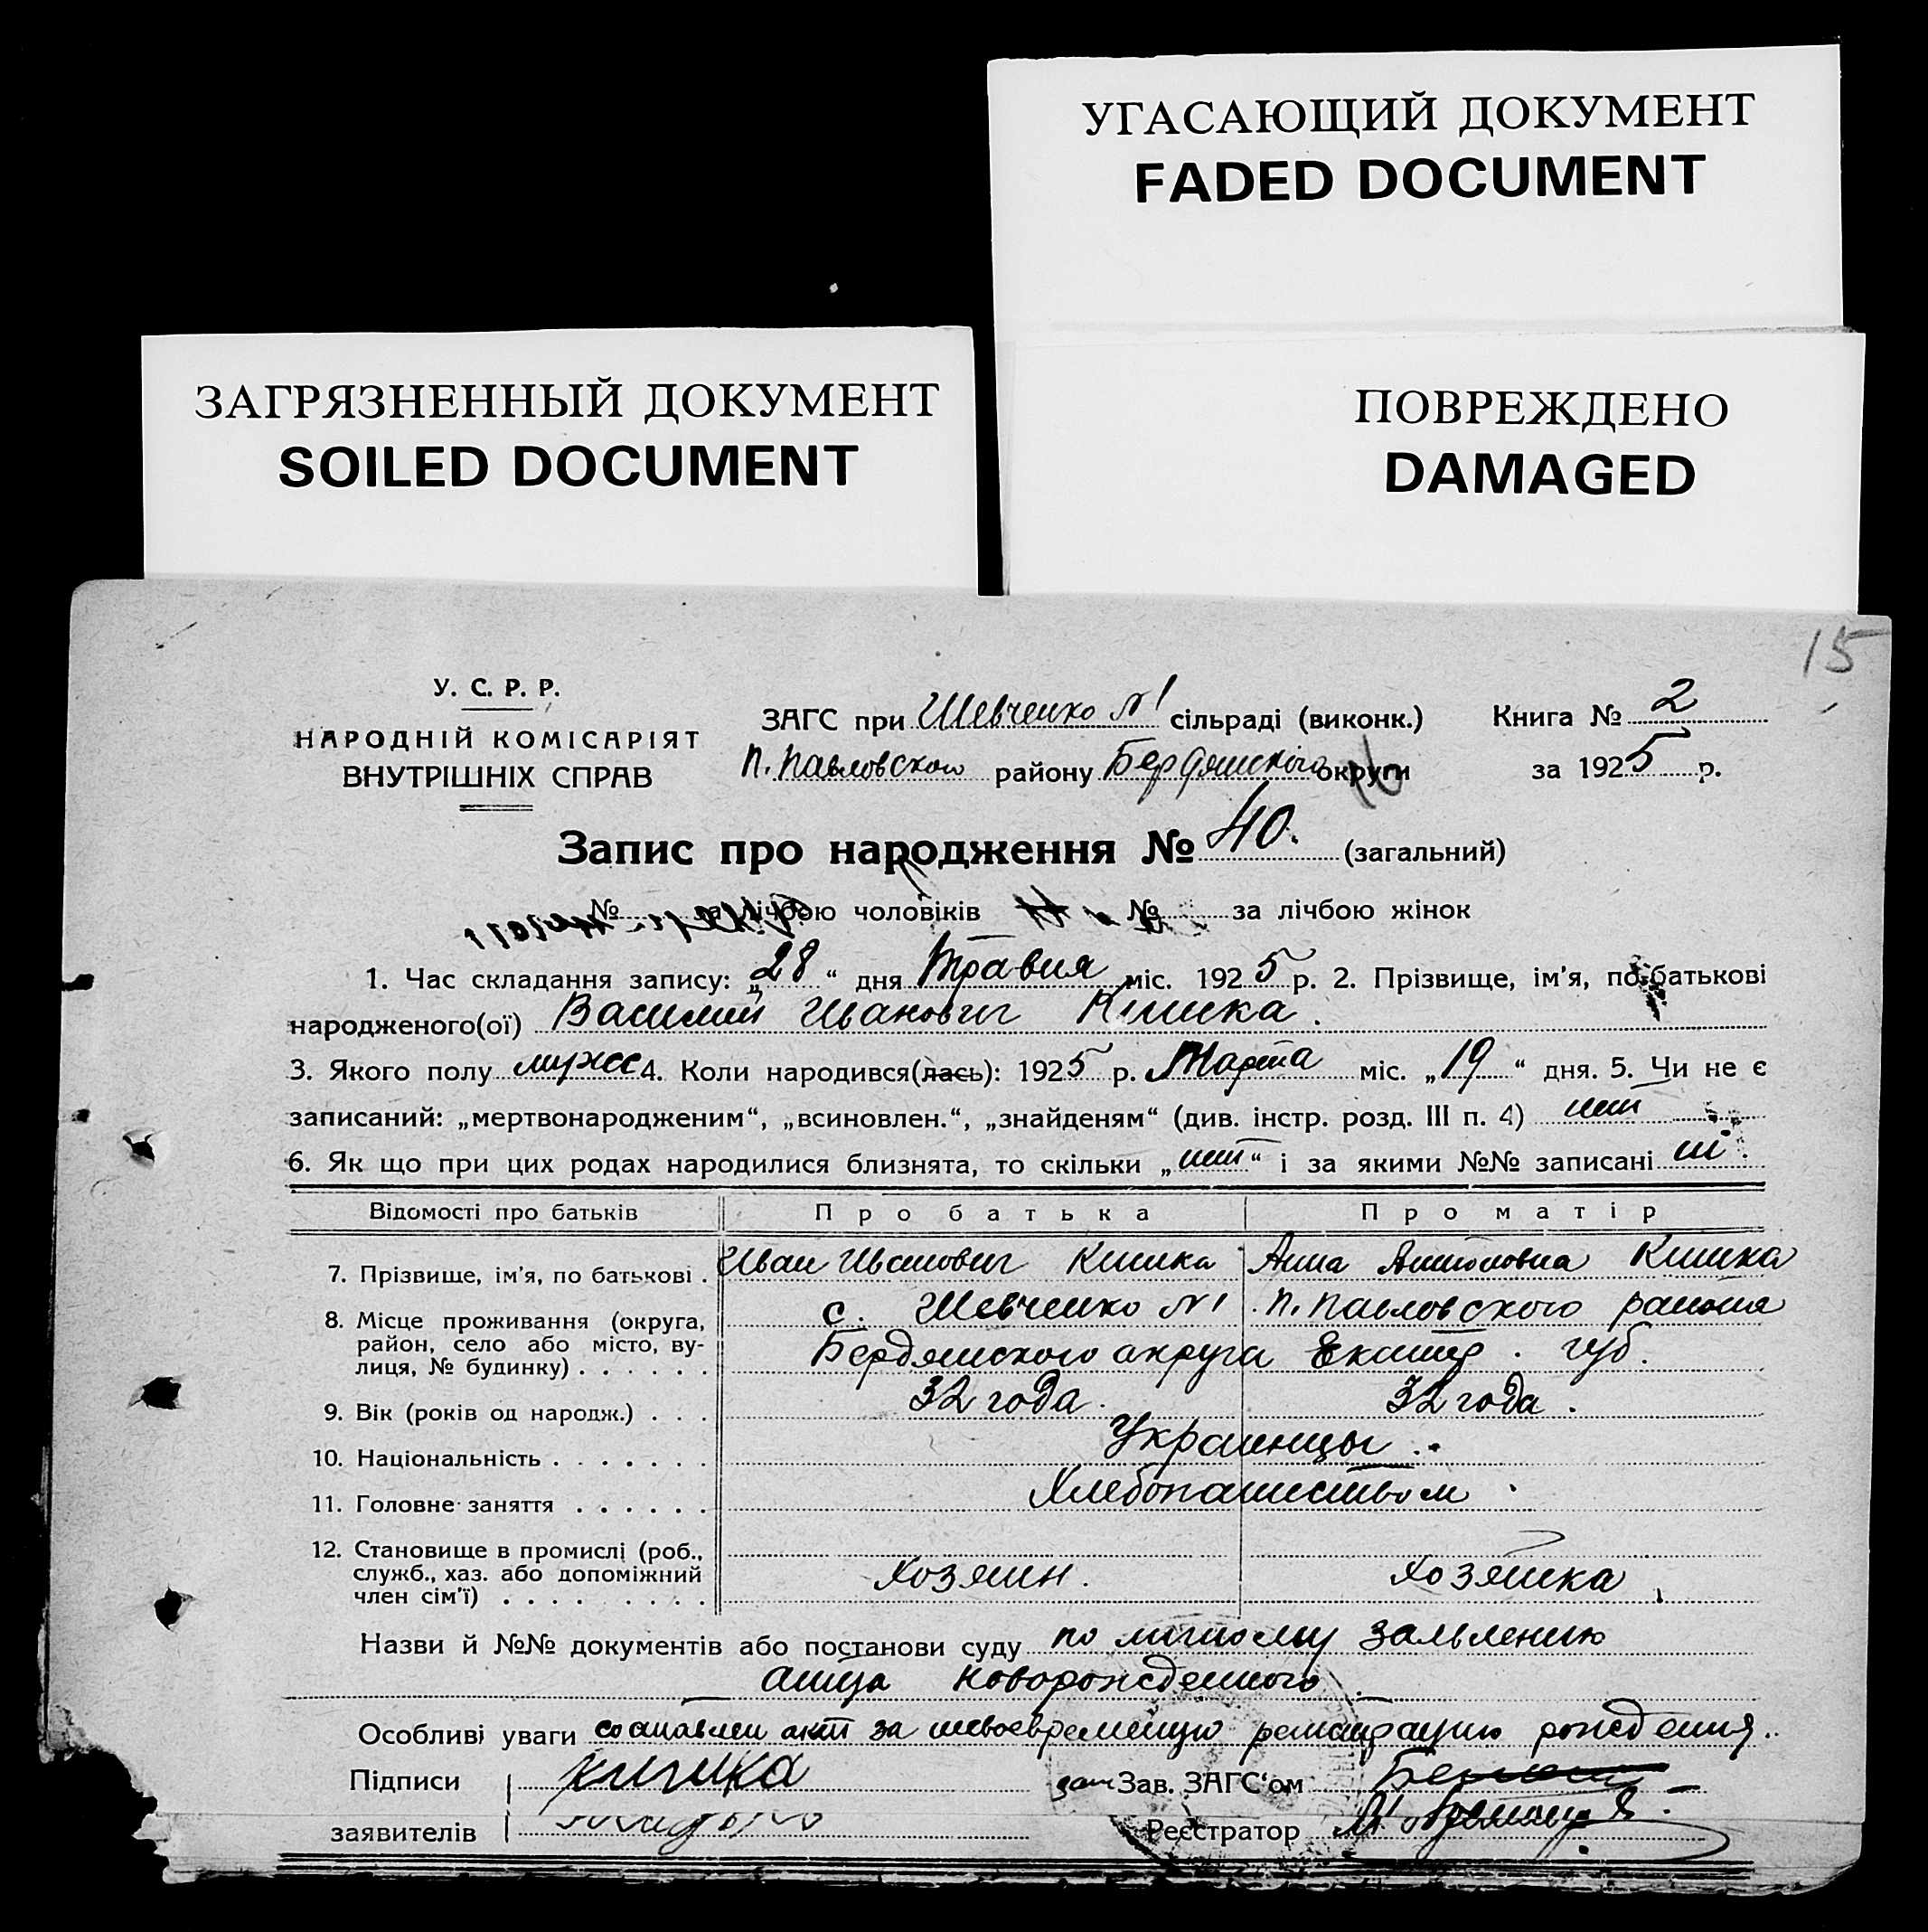 УГАСАЮЩИЙ ДОКУМЕНТ
FADED DOCUMENT
ЗАГРЯЗНЕННЫЙ ДОКУМЕНТ
SOILED DOCUMENT
ПОВРЕЖДЕНО
DAMAGED
15
У. С. Р. Р.
НАРОДНІЙ КОМІСАРІЯТ
ВНУТРІШНІХ СПРАВ
ЗАГС при Шевченко №1 сільраді (виконк.)
П. Павловского району Бердянского округи
Книга № 2
за 1925 р.
Запис про народження № 40. (загальний)
№ за лічбою чоловіків № за лічбою жінок
1. Час складання запису: „28“ дня Травня міс. 1925 р. 2. Прізвище, ім’я, по батькові
народженого(ої) Василий Иванович Кишка.
3. Якого полу мужс 4. Коли народився(лась): 1925 р. Марта міс. „19“ дня. 5. Чи не є
записаний: „мертвонародженим“, „всиновлен.“, „знайденям“ (див. інстр. розд. III п. 4) нет
6. Як що при цих родах народилися близнята, то скільки „нет“ і за якими №№ записані
Відомості про батьків Про батька Про матір
7. Прізвище, ім’я, по батькові . Иван Иванович Кишка Анна Антоновна Кишка
8. Місце проживання (округа, район, село або місто, вулиця, № будинку) . . . . . . с. Шевченко №1 П. Павловского района
Бердянского округа Екатер. губ.
9. Вік (років од народж.) . . . 32 года. 32 года.
10. Національність . . . . . . . Украинцы.
11. Головне заняття . . . . . . Хлебопашеством.
12. Становище в промислі (роб.,
служб., хаз. або допоміжний
член сім’ї) . . . . . . . . Хозяин. Хозяйка
Назви й №№ документів або постанови суду по личному заявлению
отца новорожденного.
Особливі уваги составлен акт за несвоевременную регистрацию рождения.
Підписи Кишка Зав. ЗАГС‘ом
заявителів Реєстратор